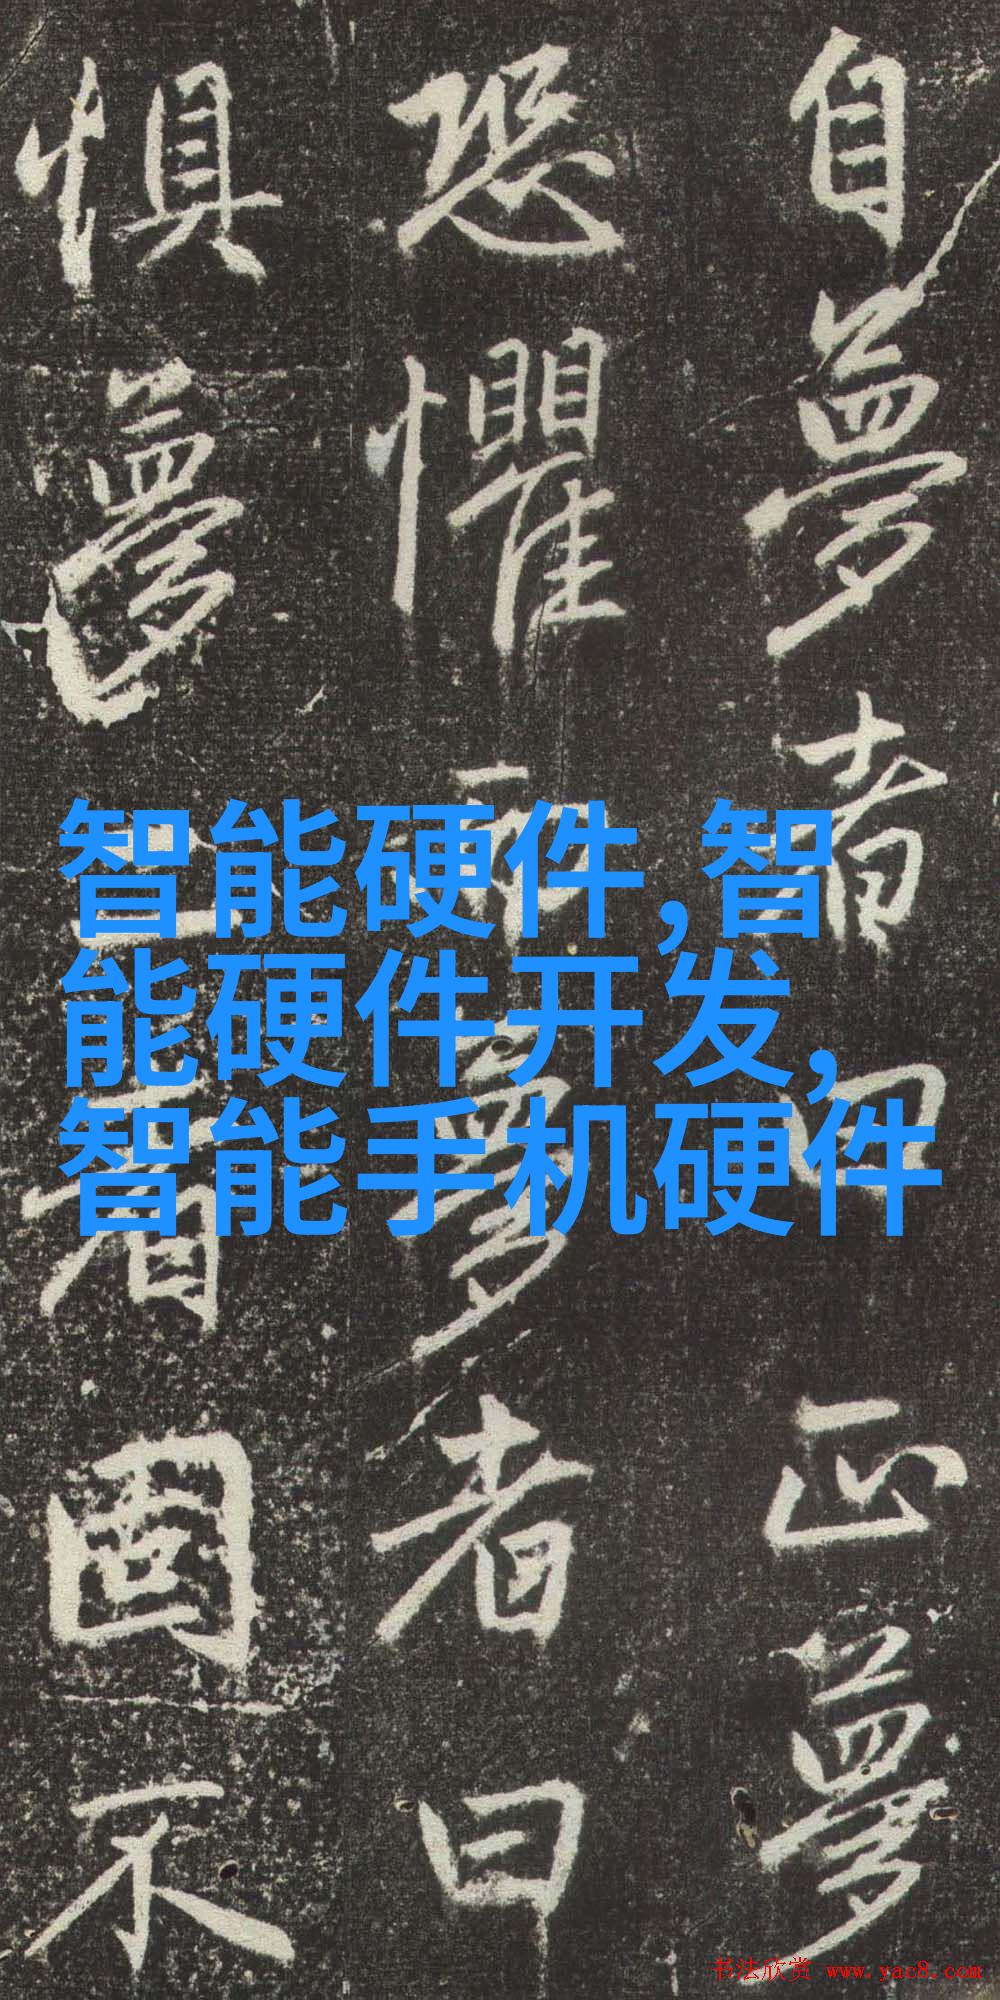 自夢者曰正夢
恐懼而夢者曰
惧夢二者固不
智能硬件,智
能硬件开发,
智能手机硬件
书法欣赏 www.yac8.com